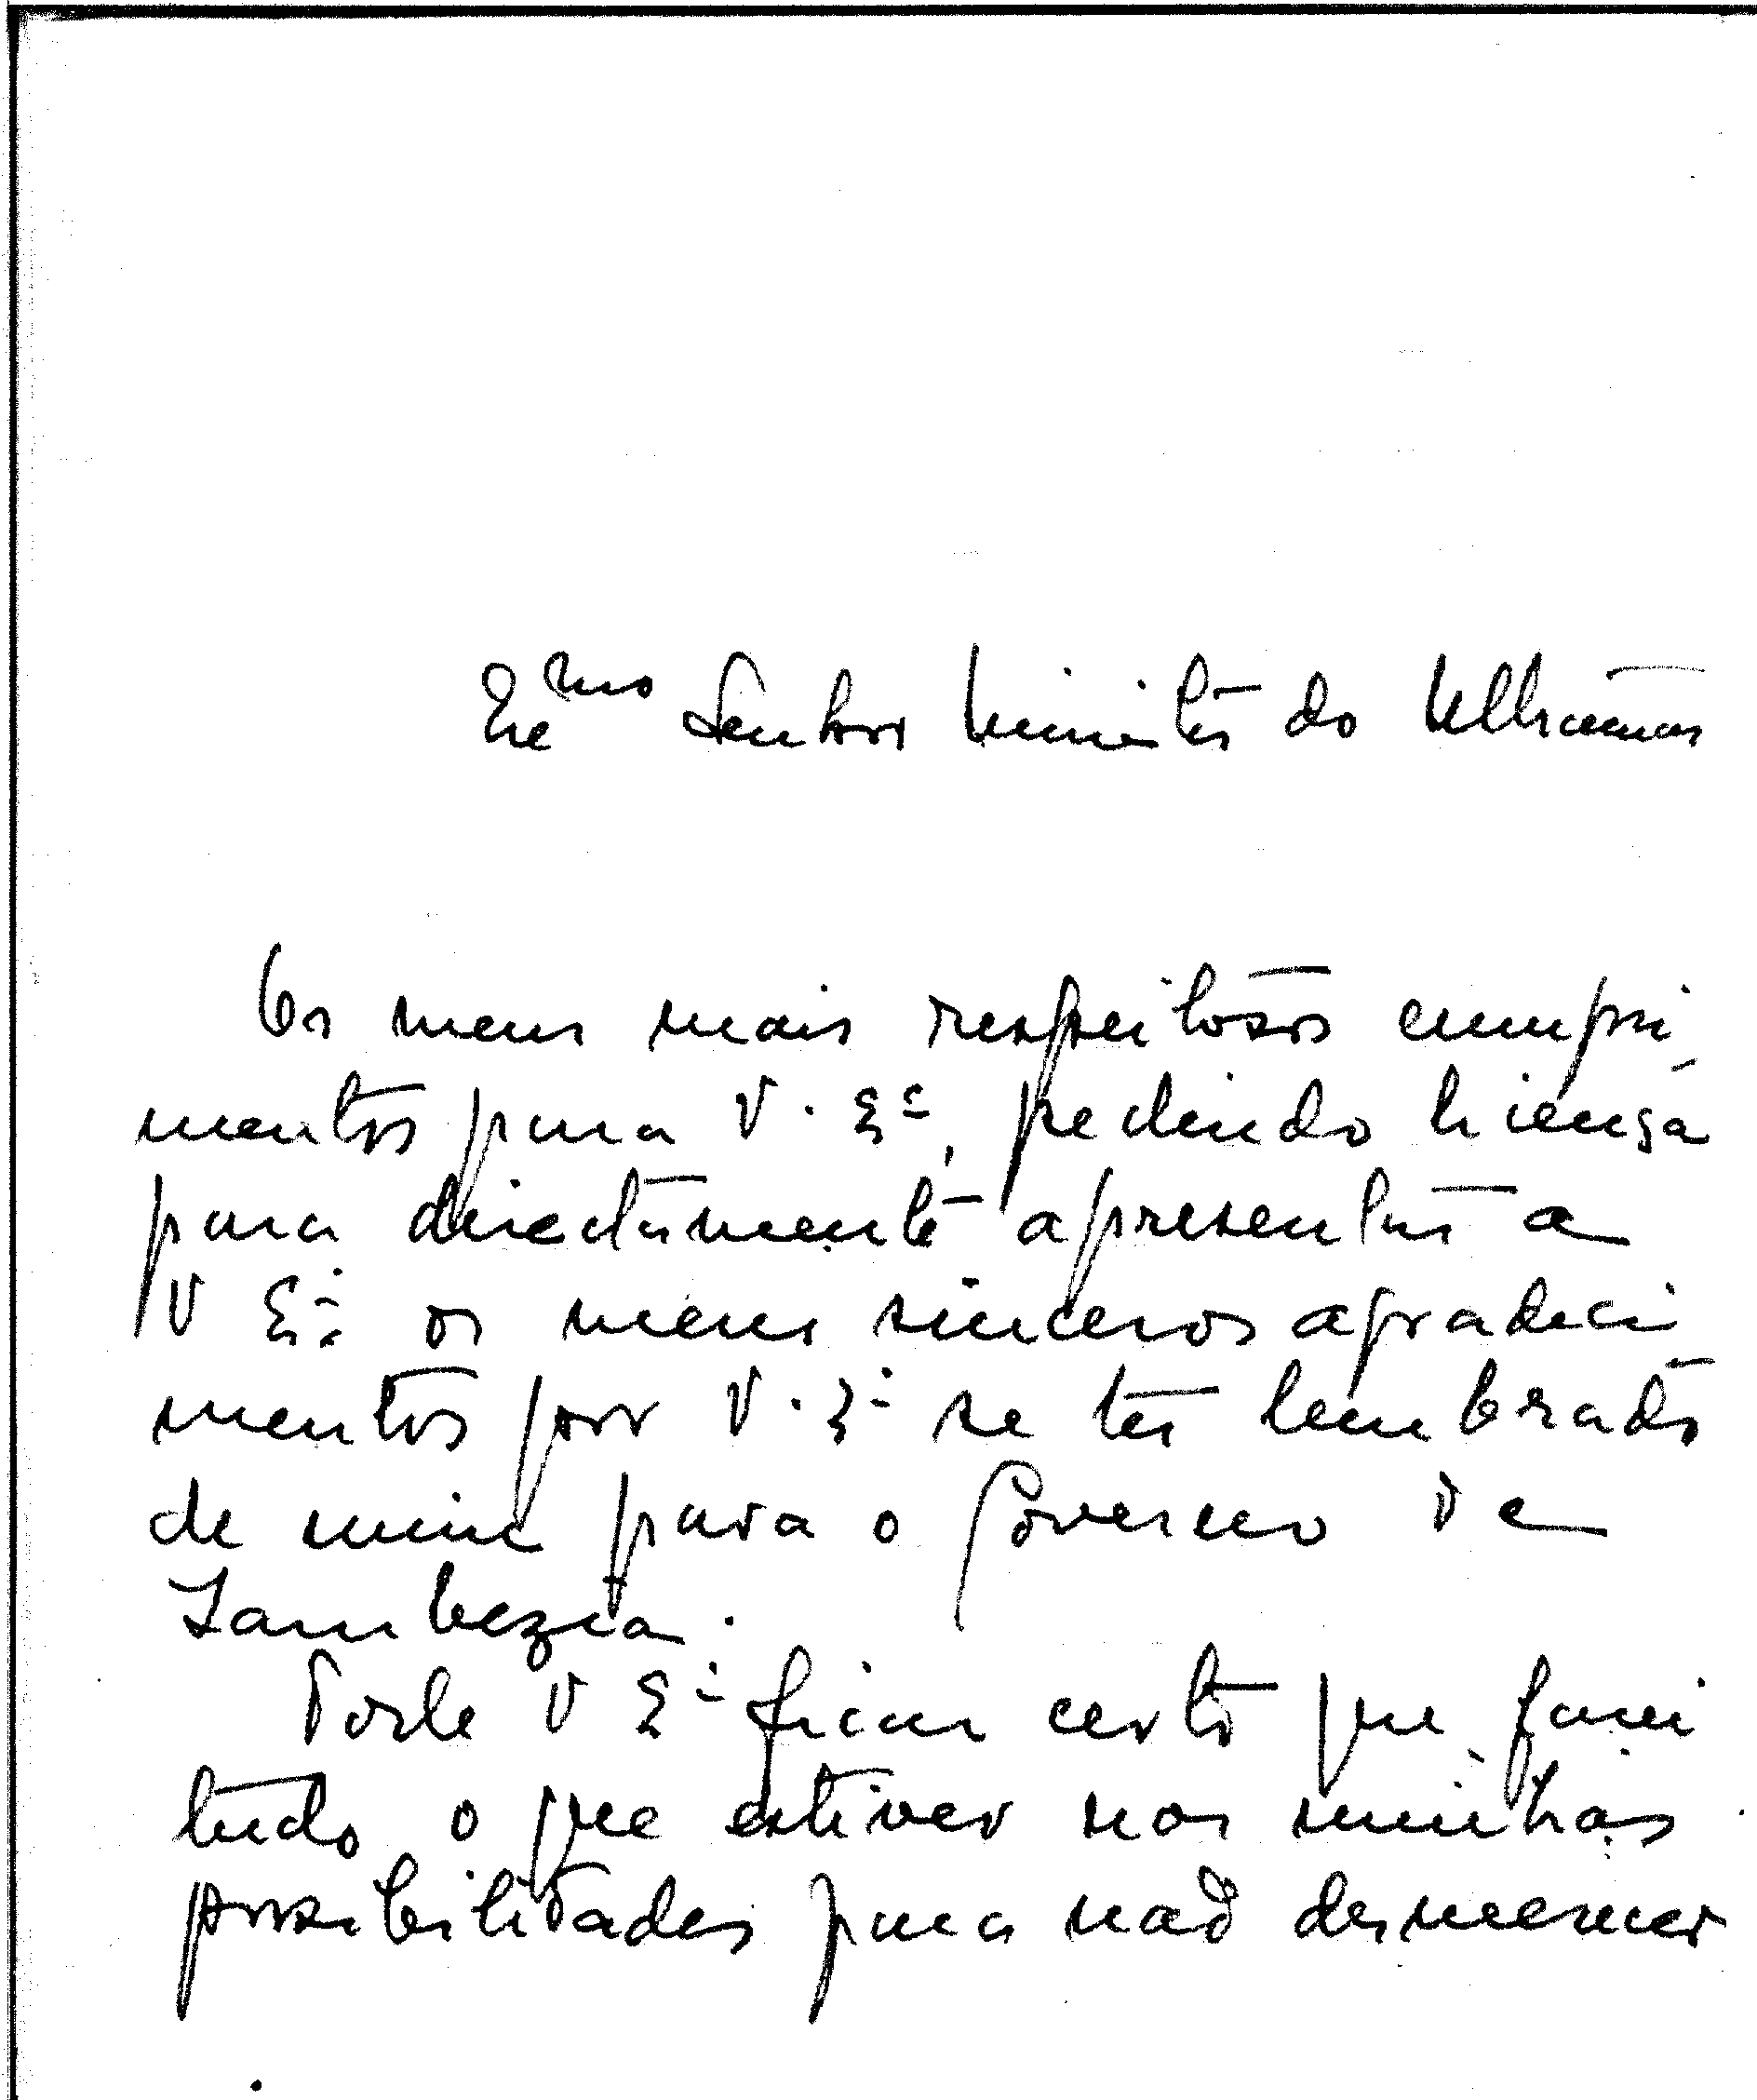 Exmo Senhor Ministro do Ultramar
Os meus mais respeitosos cumpri
mentos para V. Exª, pedindo licença
para directamente apresentar a
V Exª os meus sinceros agradeci
mentos por V. Exª se ter lembrado
de mim para o Governo da
Zambezia.
Pode V Exª ficar certo que farei
tudo o que estiver nas minhas
possibilidades para não desmerecer